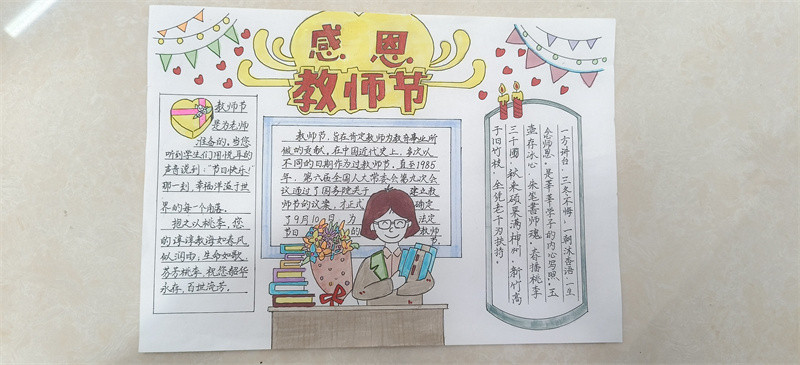 感恩
教师节
教师节
是为老师
准备的，当您
听到学生们用悦耳的
声音说到："节日快乐！"
那一刻，幸福洋溢于世
界的每一个角落。
抱之以桃李，您
的谆谆教海如春风，
似润雨；生命如歌，
芬芳桃李，祝您韶华
永存，百世流芳。
教师节，旨在肯定教师为教育事业所
做的贡献，在中国近代史上，多次以
不同的日期作为过教师节，直至1985
年，第六届全国人大常委会第九次会
议通过了国务院关于 建立教
师节的议案，才正式 确定
了9月10日 为 法定
节日 的 教师
节
一方讲台，三冬不悔，一朝沐杏语，一生
念师恩，是莘莘学子的内心写照。玉
壶存冰心，朱笔书师魂，春播桃李
三千圃，秋来硕果满神州，新竹高
于旧竹枝，全凭老干为扶持。